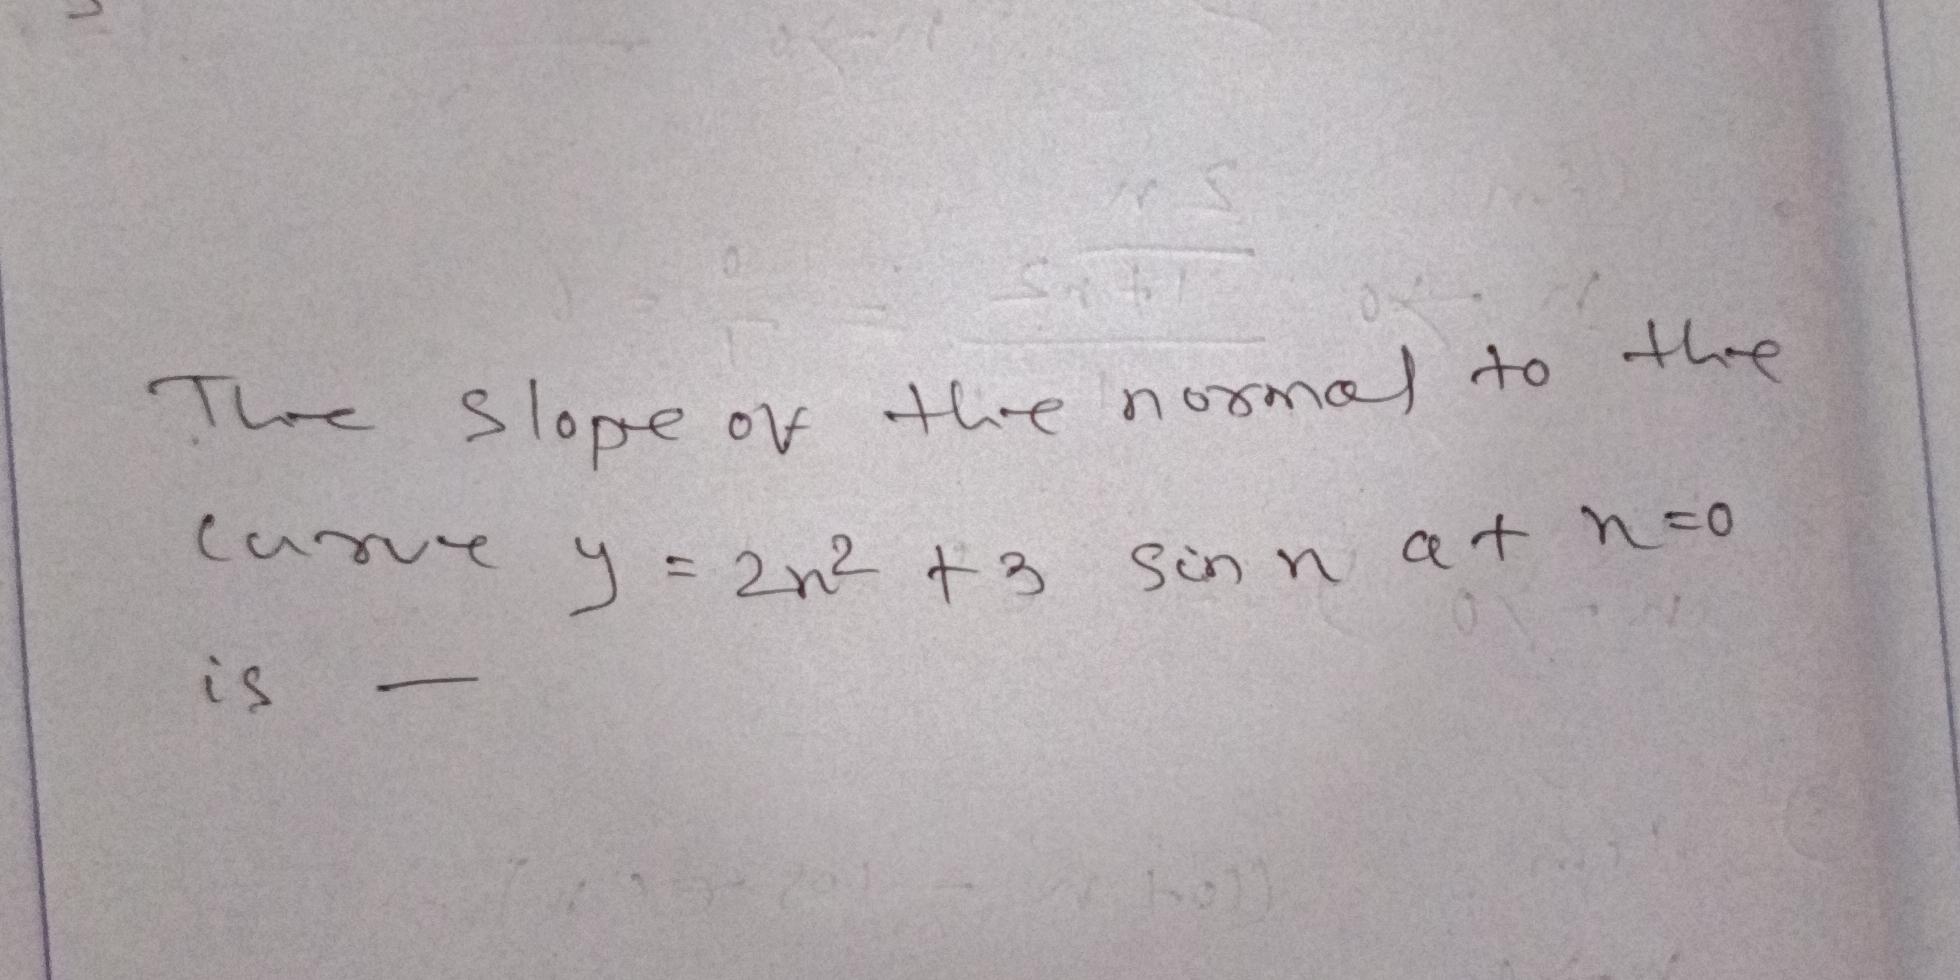 The slope of the normal to the
curve y = 2x² + 3 sin x at x=0
is —